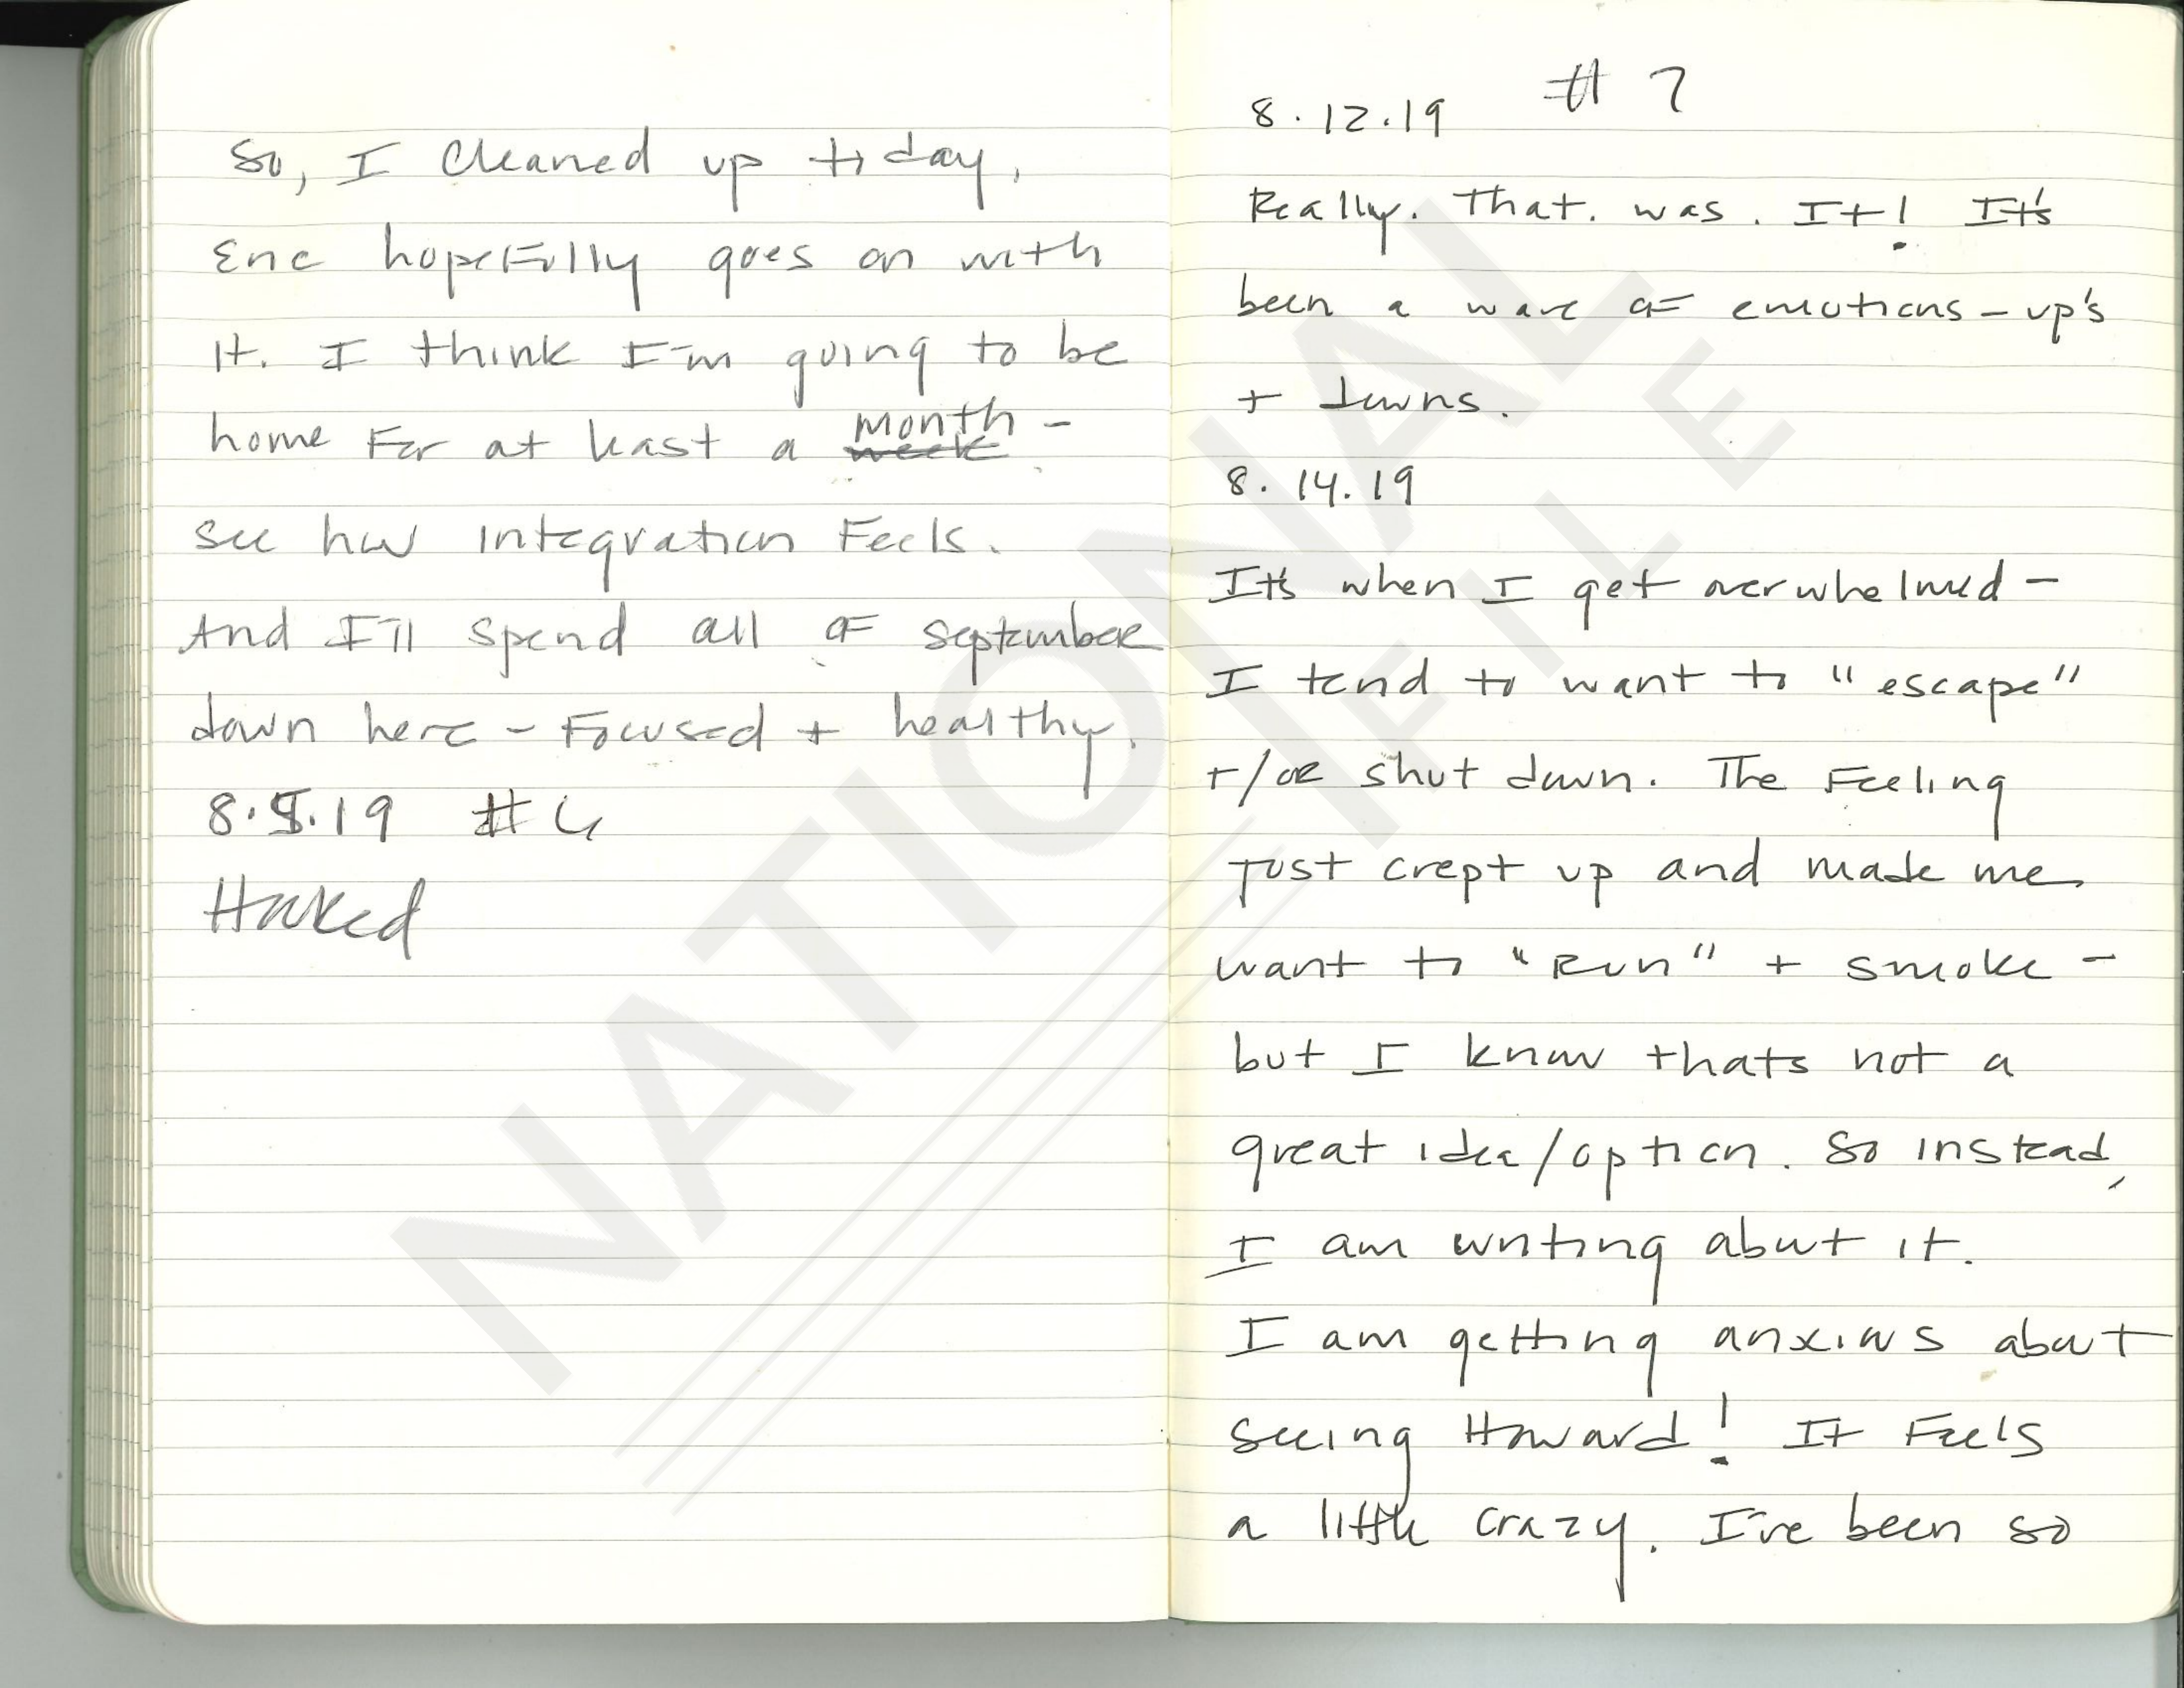 So, I cleaned up today,
Eric hopefully goes on with
it. I think I'm going to be
home For at least a ~~week~~ month -
see how integration Feels.
And I'll spend all of september
down here - Focused + healthy.
8.5.19 #6
8.12.19 # 7
Really. That. was. It! It's
been a wave of emotions - up's
+ downs.
8.14.19
It's when I get overwhelmed -
I tend to want to "escape"
+/or shut down. The Feeling
just crept up and made me
want to "run" + smoke -
but I know thats not a
great idea/option. So instead,
I am writing about it.
I am getting anxious about
seeing Howard! It Feels
a little crazy. I've been so
NATIONAL
FILE